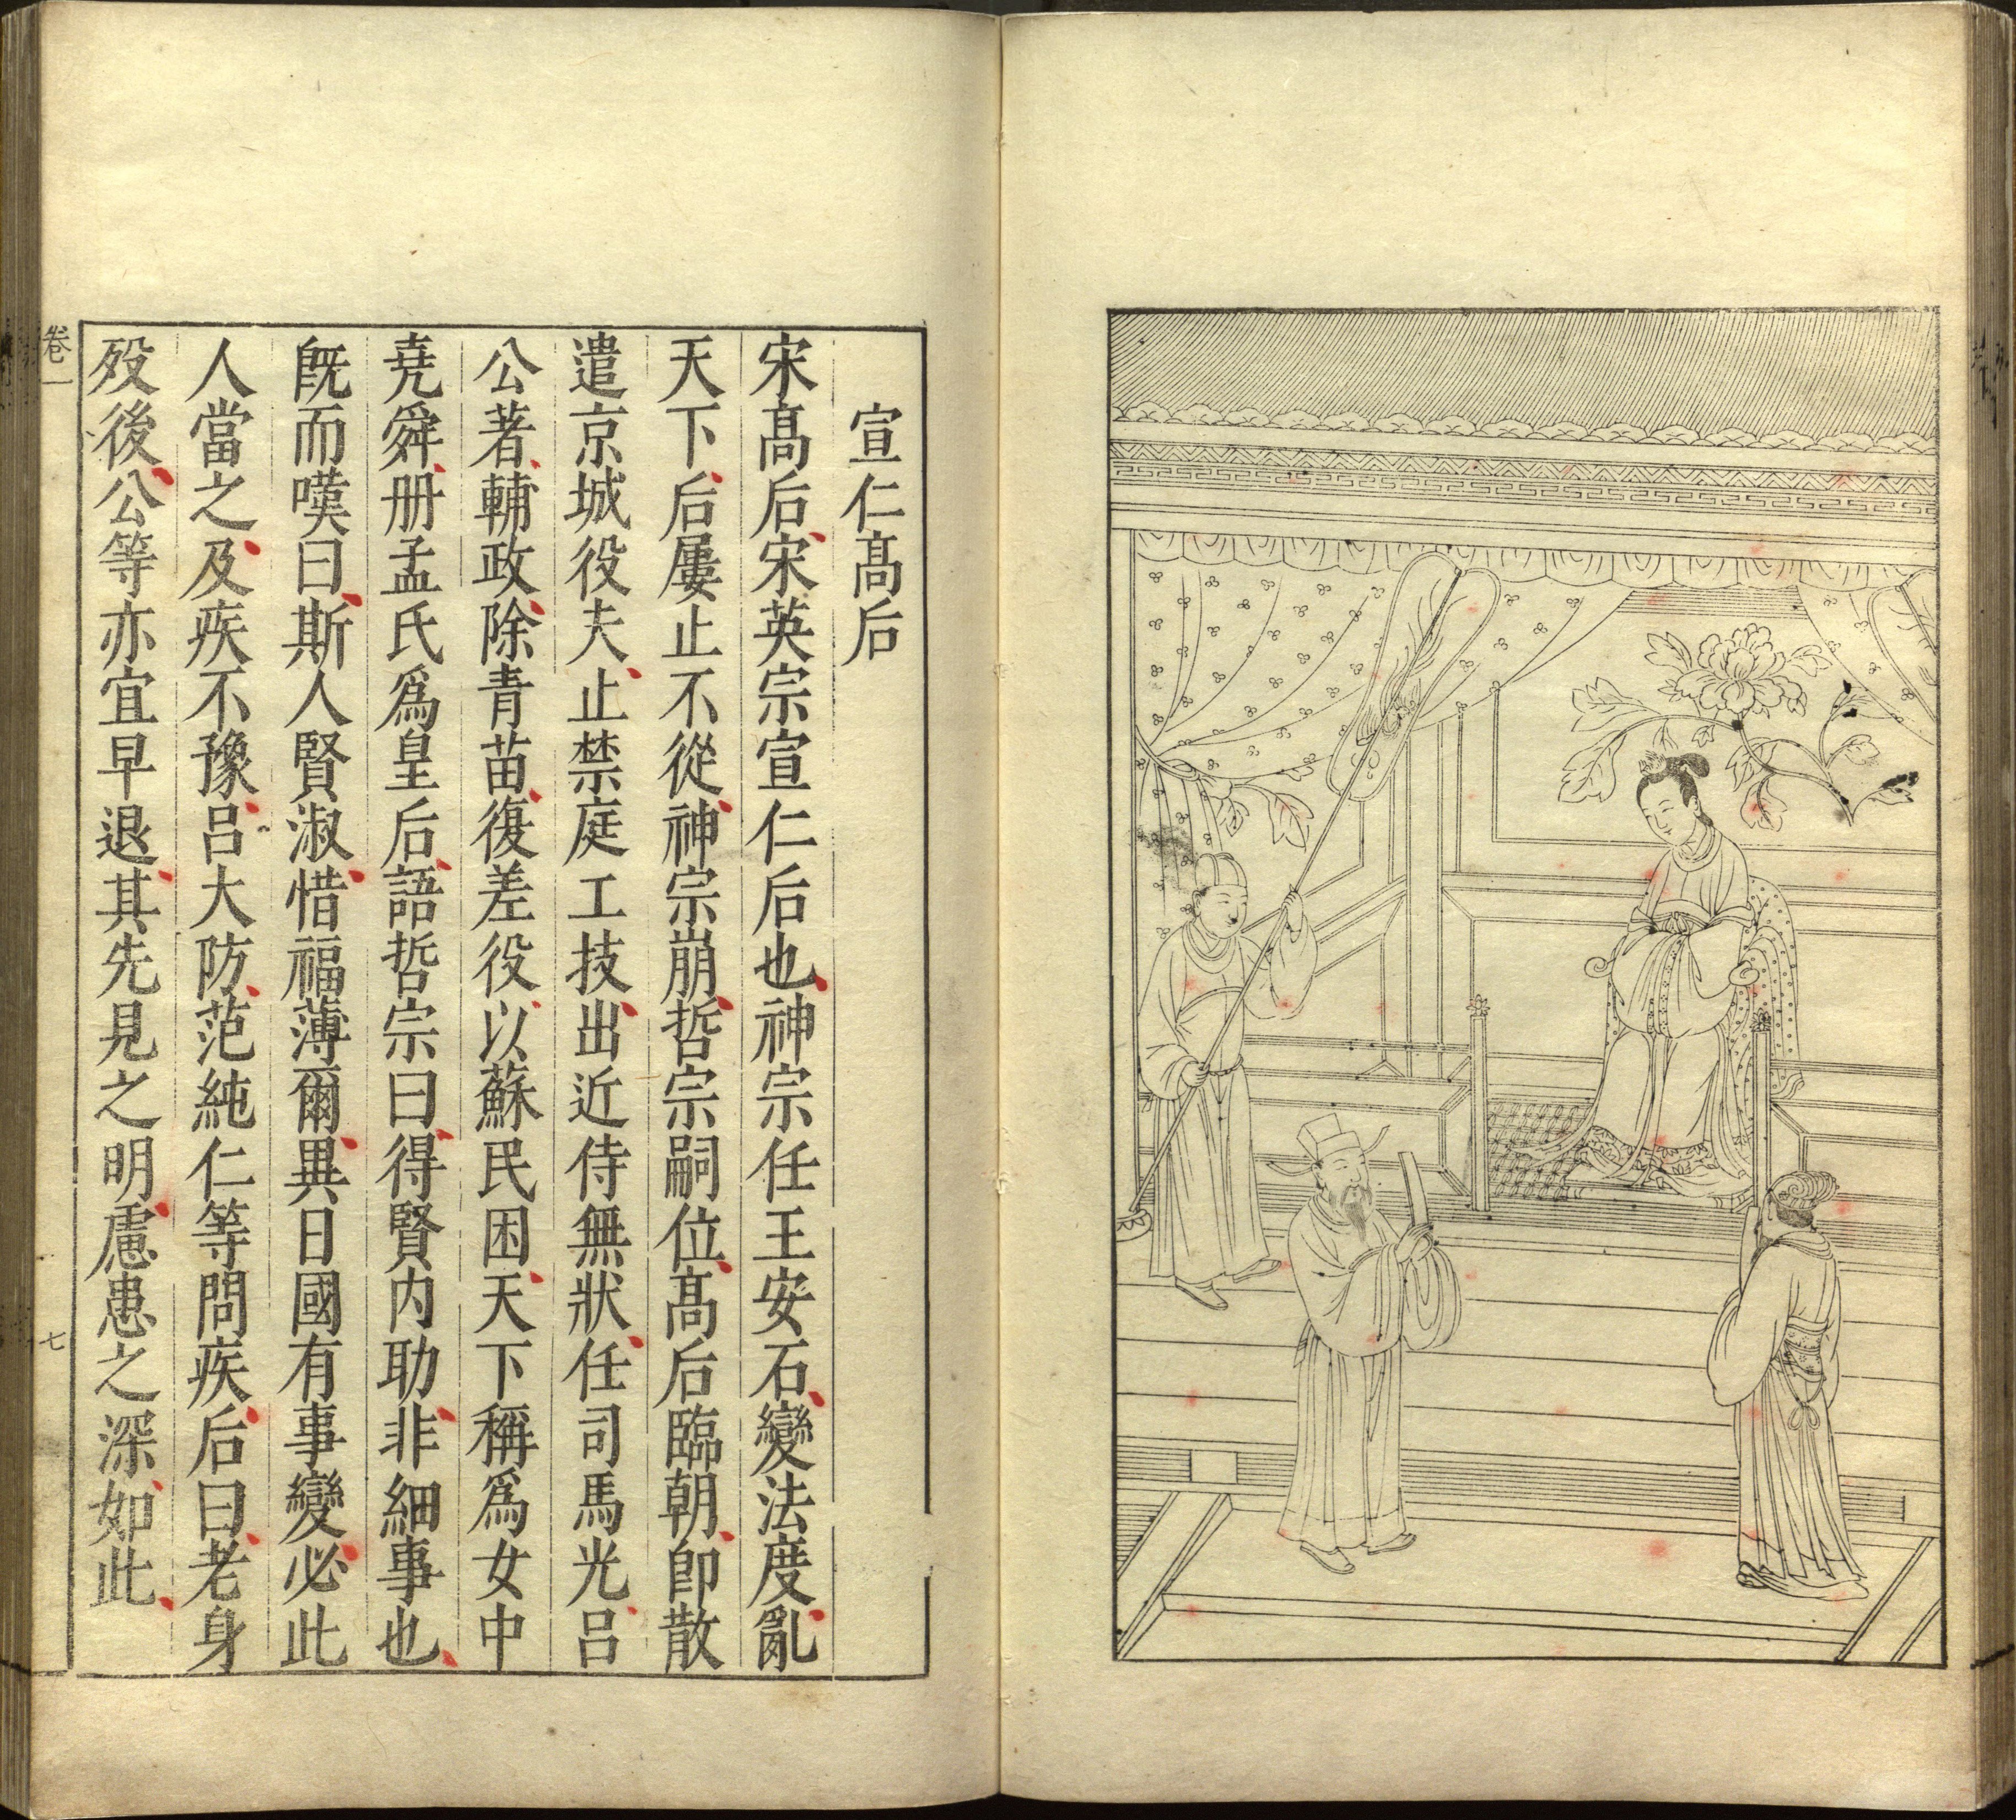 宣仁高后
宋高后宋英宗宣仁后也神宗任王安石變法度亂
天下后屢止不從神宗崩哲宗嗣位高后臨朝卽散
遣京城役夫止禁庭工技出近侍無狀任司馬光呂
公著輔政除青苗復差役以蘇民困天下稱爲女中
堯舜册孟氏爲皇后語哲宗曰得賢内助非細事也
旣而嘆曰斯人賢淑惜福薄爾異日國有事變必此
人當之及疾不豫呂大防范純仁等問疾后曰老身
歿後公等亦宜早退其先見之明慮患之深如此
卷一
七